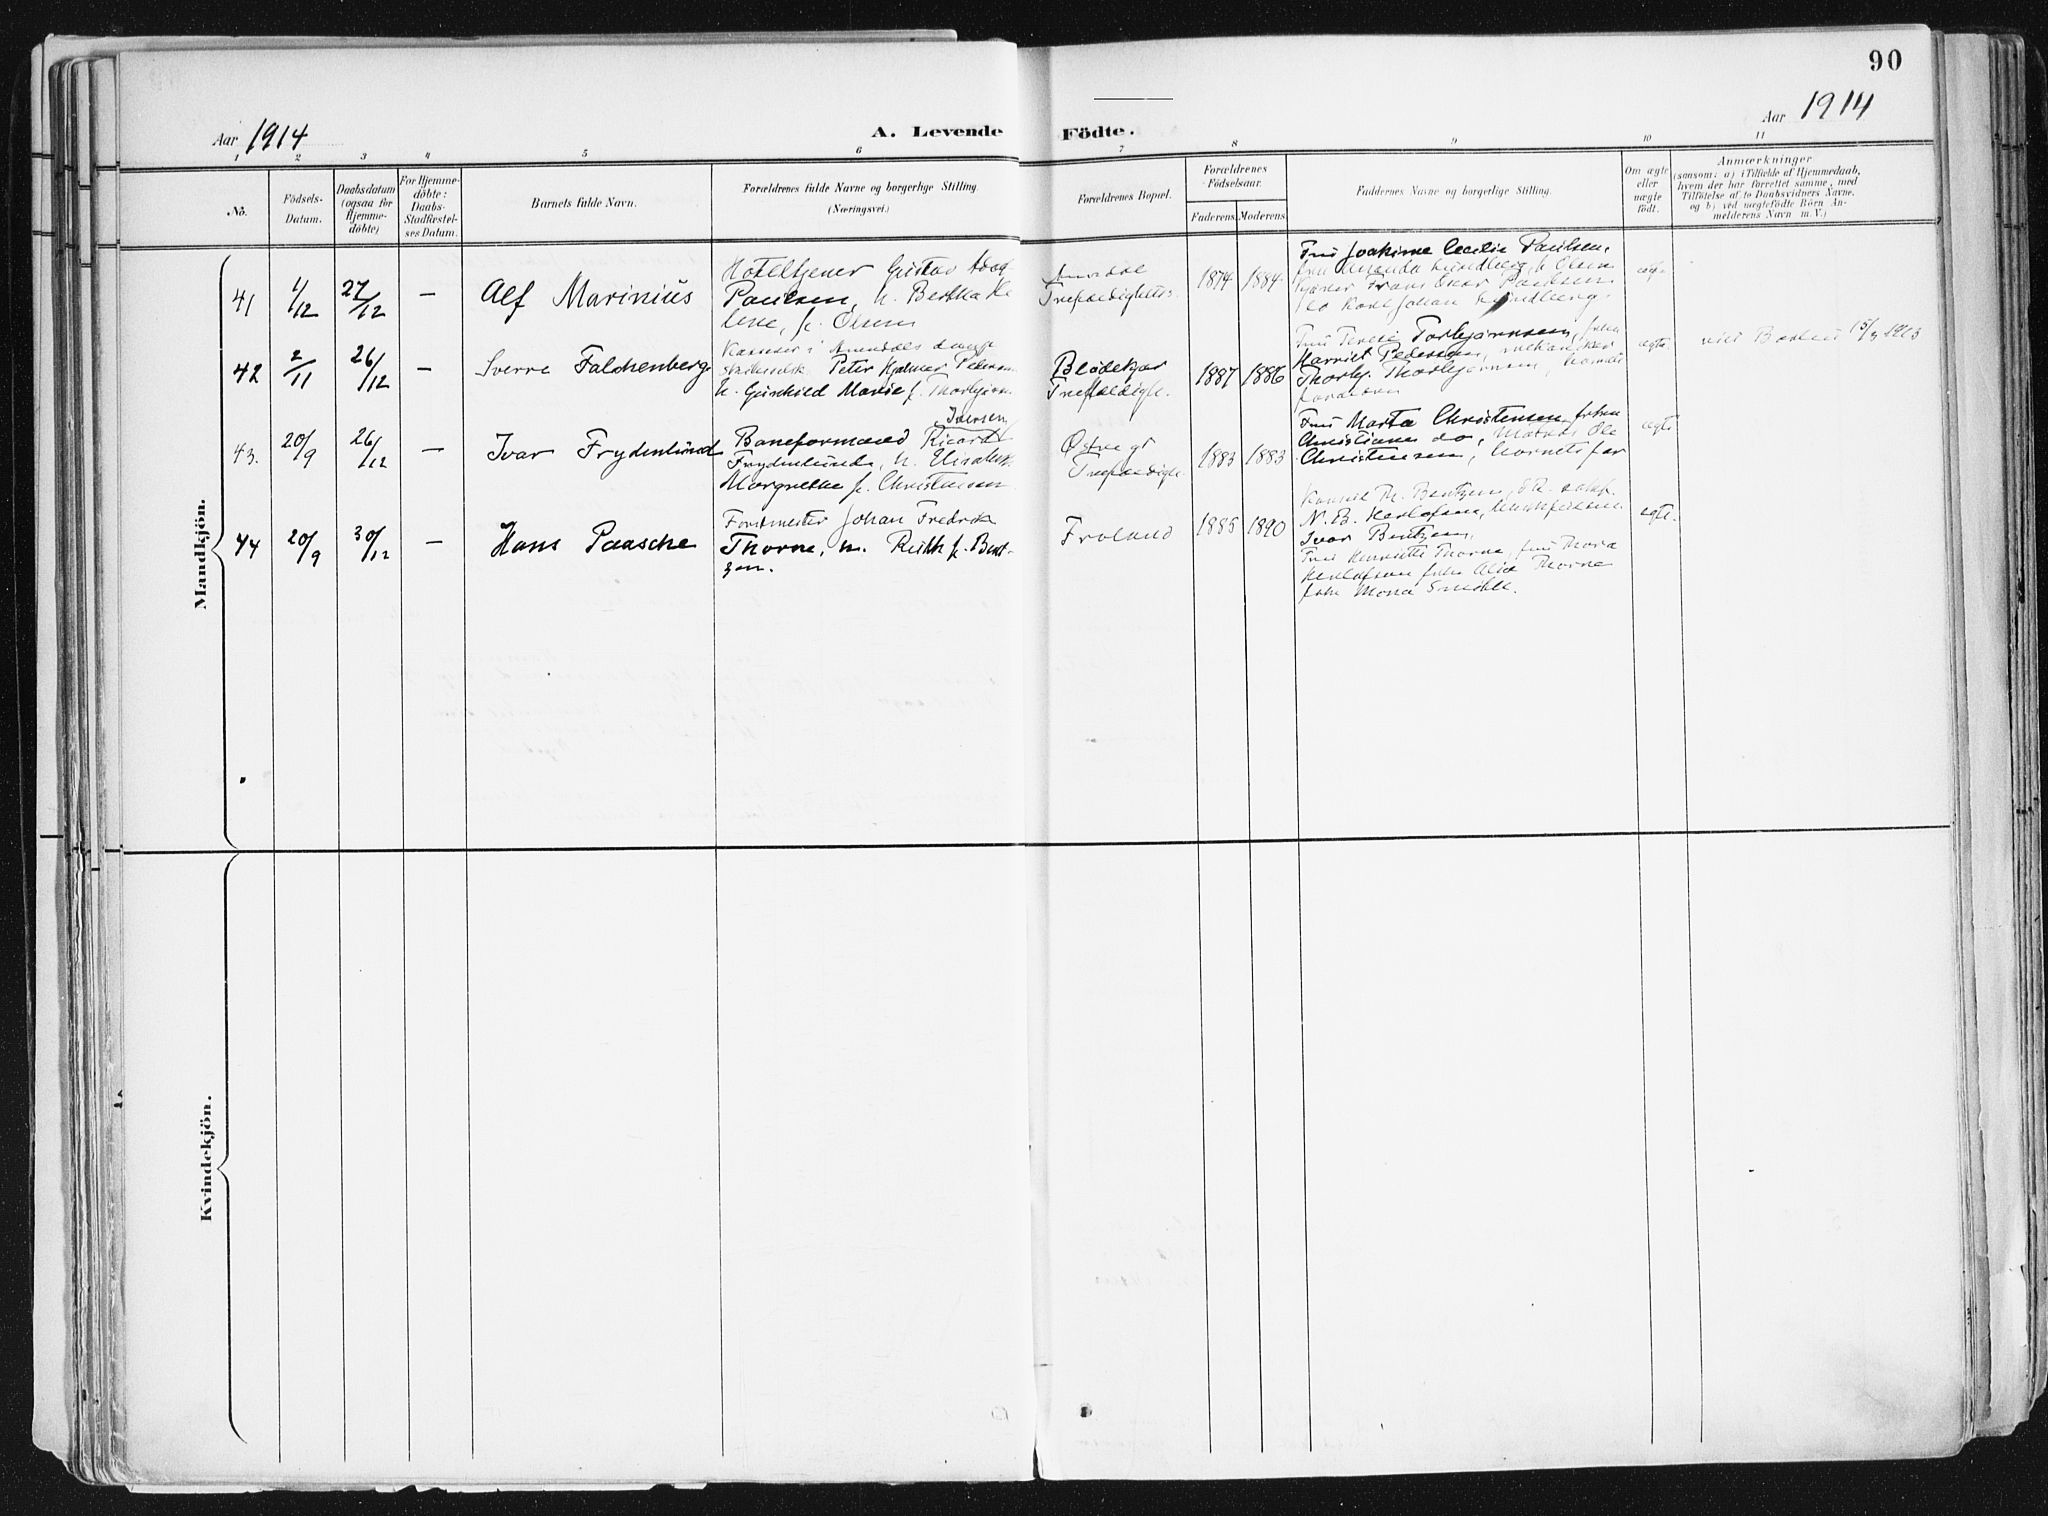 90
Aar 1914
A. Levende Födte.
Aar 1914
1 2 3 4 5 6 7 8 9 10 11
No.
Födsels-Datum.
Daabsdatum (ogsaa for Hjemme-döbte)
For Hjemme-döbte: Daabs-Stadfæstel-ses Datum.
Barnets fulde Navn.
Forældrenes fulde Navne og borgerlige Stilling.
(Næringsvei.)
Forældrenes Bopæl.
Forældrenes Födselsaar.
Faderens. Moderens.
Faddernes Navne og borgerlige Stilling.
Om ægte eller uægte födt.
Anmærkninger
(saasom: a) i Tilfælde af Hjemmedaab,
hvem der har forrettet samme, med
Tilföielse af to Daabsvidners Navne,
og b) ved uægtefödte Börn An-
melderens Navn m. V.)
Mandkjön.
41 1/12 27/12 — Alf Marinius
Hoteltjener Gustav
Paulsen, h. Bertha He
lene, f. Olsen
Arendal
Trefoldigheds.
1874 1884
Fru Joakime Cecilie Paulsen,
fru Amanda Lundberg, f. Olsen
Frans Oskar Paulsen
Karl Johan Lundberg
ægte
42 2/11 26/12 — Sverre Falchenberg
Kasserer i Arendals
Peter Hjalmar Pedersen
h. Gunhild Marie f. Thorbjørn
Blødekjær
Trefoldigh.
1887 1886
Fru Terese Torbjørnsen, frøken
Harriet Pedersen, mekaniker
Thorbj. Thorbjørnsen, barnets
forældre
ægte
viet Barbu 15/3 1913
43. 20/9 26/12 — Ivar Frydenlund
Iversen
Baneformand Ricard
Frydenlund, h. Elisabeth
Margrethe f. Christensen
Østre gt
Trefoldigh.
1883 1883
Fru Marta Christensen, frøken
Christiane do, Matros Ole
Christensen, barnets far
ægte
44 20/9 30/12 — Hans Paasche
Forstmester Johan Fredrik
Thorne, h. Ruth f. Bent-
zen.
Froland
1885 1890
Konsul Th. Bentzen,
N. B. Herlofson,
Ivar Bentzen,
Fru Henriette Thorne, fru Thora
Herlofson frøken Alice Thorne
frøken Mona Smith.
ægte.
Kvindekjön.